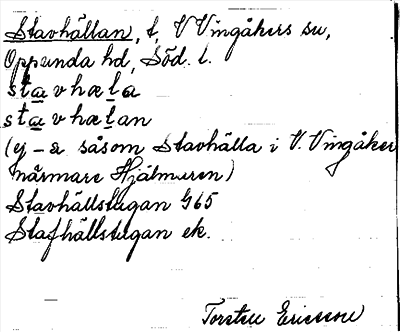 Stavhällan, t, V Vingåkers sn,
Oppunda hd, Söd. l.
stavhæla
stavhælan
(ej -a såsom Stavhälla i V. Vingåker
närmare Hjälmaren)
Stavhällstugan G65
Stafhällstugan ek.
Torsten Ericsson